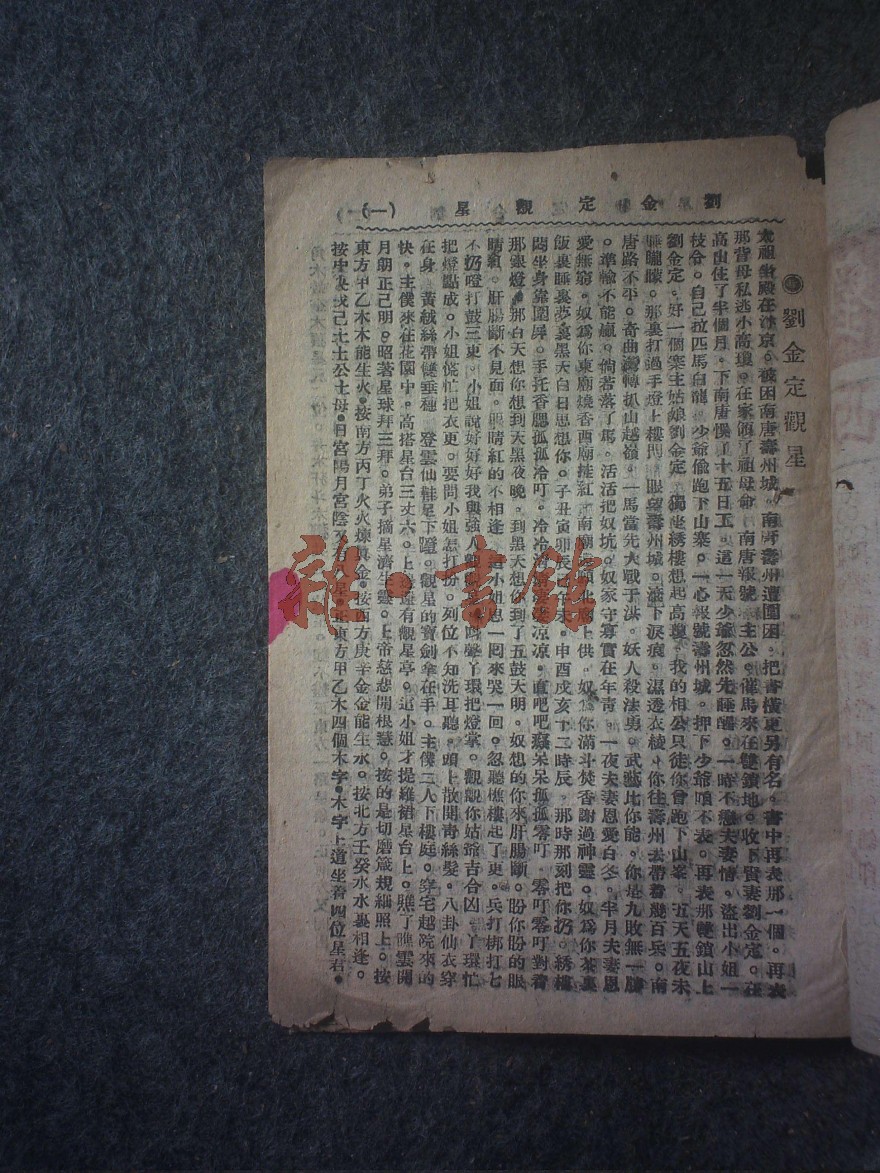 劉金定觀星 (一)
劉金定觀星
太祖坐殿在汴京。被困南唐壽州城。南唐壽州遭圍困。把書橫更另有名。書中再表那一個。再表
那背母私逃小高瓊。在家領了祖母命 南唐報號一主公。催馬來在雙鎖地。收下賢妻劉金定。在
高山住了半個月。下南唐悞了十五日工。這一天少爺忽然先睡醒。一時不戀夫妻情。盜出小姐一
枝令。自己拉匹馬白龍。少爺偷跑下山寨。一心報號壽州城。押下少爺咱不表。再表那雙鎖山上
劉金定。好一個寨主姑娘劉金定 獨坐綉樓想起高瓊。我的相公只從你曾跑下山峯。五天五夜未
睡朧朦。那裏打過手燈上樓門。眼望壽州城。滾下淚痕。濕透衣綾。你往壽州去帶着幾百兵。南
唐路不平。奇曲灣轉抓山越嶺。一馬當先大戰于洪。妖人殺法勇。武藝比你能。你是九敗無一勝
。準輸不能瀛。倘若落了馬。活活把奴坑。奴家守寡實在年青。一夜夫妻恩愛百冬。半月夫妻恩
愛無窮。奴爲你東廟燒香西廟挂紅。南廟 頭北廟上供。奴爲你滿斗焚香謝過神靈。奴爲你茶裏
飯裏睡裏夢裏黑天白日思想你。子丑寅卯辰巳午未。申酉戌亥十二時辰。那時那刻把你扔。綉樓
悶坐身靠圍屏。手托香腮孤孤冷叮。冷冷清清凄凄凉凉。直吧吧癡呆呆孤孤零叮 零叮零叮對着
那銀燈。那白天想你想到天黑夜晚。到黑天想你到了五鼓天明。奴想的你來肝腸斷。盼你盼的眼
睛 。肝腸斷不見面。眼睛紅的不相逢。這小姐思一囘來哭一回。忽聽樵樓起了更。兵打梆打七
不扔噔打鼓三更。小姐說好好好我與強人 。 聲丫環把燈掌。觀觀你姑爺吉合凶。丫環忙
把燈點成。小姐慌忙把衣更。要問小姐怎打扮。列位不知洗耳聽。頭上散開青絲髮。八卦仙衣穿
在身。黃絨絲帶雙垂穗 登雲仙鞋足下蹬。觀星的寶劍拿在手。主僕二人下樓庭。穿宅越院來的
快。主僕來在花園中。高搭星台三丈六。上邊還有觀星亭。這小姐才提羅裙星台上。瞧了瞧雲開
月朗正己明。昭著星球拜三拜。弟子摘星濟生靈。上帝慈悲開根慧。按的是切磨箴規細照上。按
東方甲乙木木能生火。按南方丙丁火火煉眞金。按西方庚辛金金能生水。按北方壬癸水水裏相逢。
按中央戊己土土公土母。日宮陽月宮陰 星。正東方甲乙木四個木字。木字上邊坐着四位星君。
雜·書館